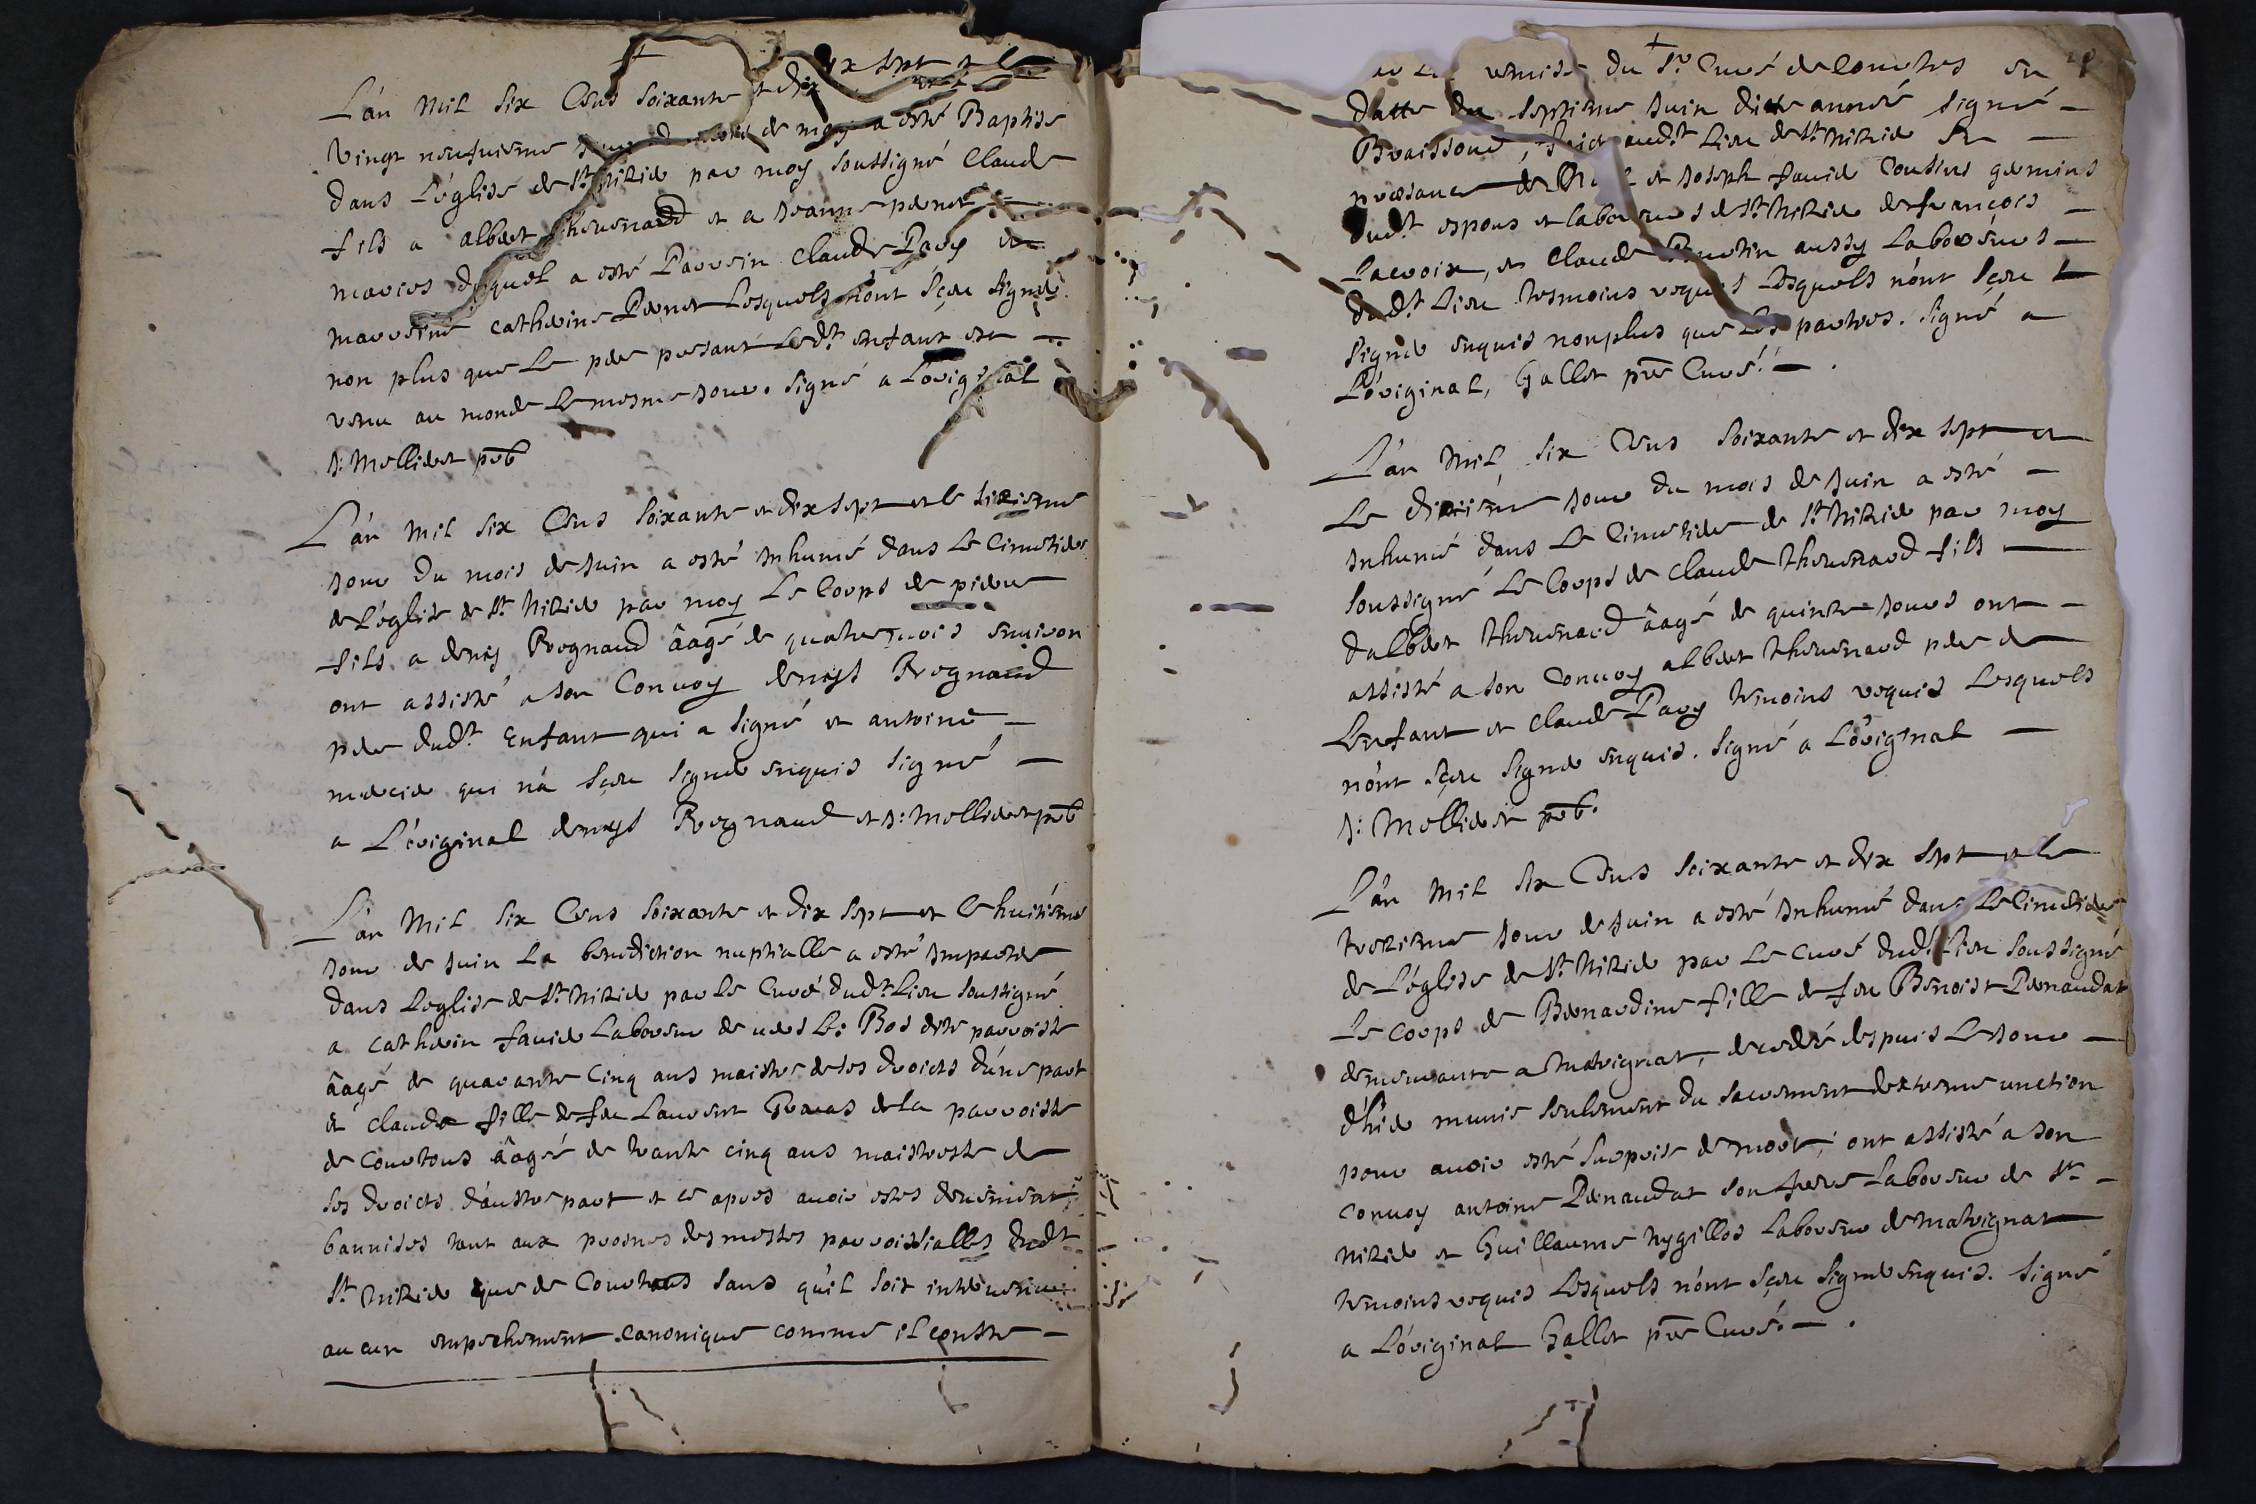 L'an Mil Six Cens Soixante et dix sept et le
vingt neufuiesme jour du mois de may a esté Baptisé
dans L'église de St Nizier par moy soussigné Claude
fils a albert Theuenard et a Jeanne perret
mariés duquel a esté Parrein Claude Pary et
marreine catherine Perret Lesquels n'ont sçeu signer
non plus que Le pere present Ledt enfant est
venu au monde Le mesme jour. Signé a L'original
J: Mellieret pbr
L'an Mil Six Cens Soixante et dix sept et le sixiesme
jour du mois de Juin a esté Inhumé dans Le Cimetiere
de L'église de St Nizier par moy Le Corps de pierre
fils a denys Reognaud âagé de quatre mois enuiron
ont assisté a son Conuoy denys Reognaud
pere dudt Enfant qui a signé et antoine
mercier qui n'a sçeu signer enquis signé
a L'original denys Reognaud et J: Mellieret pbr
L'an Mil Six Cens Soixante et dix sept et Le huitiéme
jour de Juin La benediction nuptialle a esté Impartie
dans L'eglise de St Nizier par Le Curé dudt Lieu soussigné
a Catherin fauier Laboureur de uers Le Bos dite parroisse
âagé de quarante cinq ans maistre de ses droicts d'une part
Et Claude fille de feu Laurent Grauas de la parroisse
de Courtous âagée de trante cinq ans maistresse de
ses droicts d'austre part et ce apres auoir estés deuement
bannises tant aux prosnes des messes parroissialles dudt
St Nizier que de Courtous sans qu'il soit interuenu
aucun empeschement canonique comme il conste
remise du Sr Curé de Courtes en
datte du septiesme Juin dicte année signée
Braissoud, faict audt Lieu de St Nizier En
presance de et Joseph fauier Cousins germins
dudt espous et laboureurs de St Nizier de francois
Lacroix, et Claude aussy Laboureurs
dudt Lieu tesmoins requis Lesquels n'ont sçeu
signer enquis non plus que Les parties. Signé a
L'original, Gallet pre Curé.
L'an Mil Six Cens Soixante et dix sept et
Le dixiéme jour du mois de Juin a esté
Inhumé dans Le Cimetiere de St Nizier par moy
soussigné Le Corps de Claude Theuenard fils
d'albert Theuenard âagé de quinze jours ont
assisté a son Conuoy albert Theuenard pere de
L'enfant et Claude Pary temoins requis Lesquels
n'ont sçeu signer enquis. Signé a L'original
J: Mellieret pbr.
L'an Mil Six Cens Soixante et dix sept et le
treziesme jour de Juin a esté Inhumé dans Le Cimetiere
de L'église de St Nizier par Le Curé dudt Lieu soussigné
Le Corps de Bernardine fille de feu Benoist Pernaudat
demeurante a Malvignat, decedée despuis Le jour
d'hier munie seulement du sacrement d'extreme unction
pour auoir esté surprise de mort; ont assisté a son
conuoy antoine Pernaudat son frere Laboureur de St
Nizier et Guillaume Nygillos Laboureur de Malvignat
temoins requis Lesquels n'ont sçeu signer enquis. Signé
a L'original Gallet pre Curé.